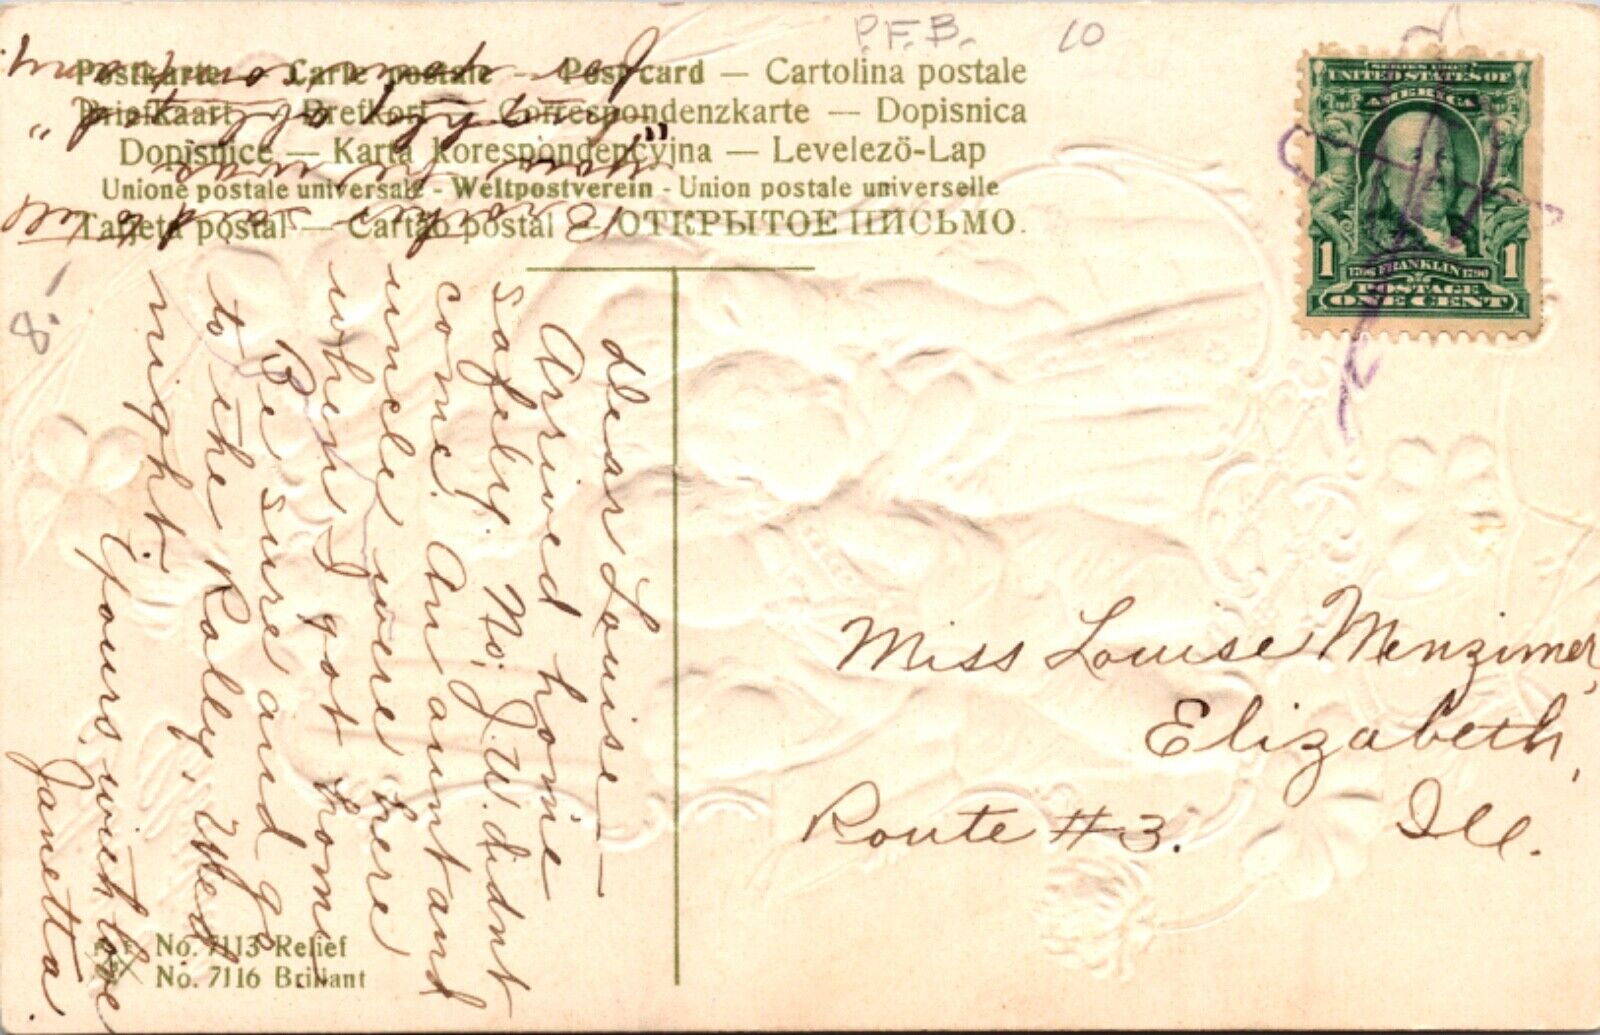 P.F.B. 10
Postkarte — Carte postale — Post card — Cartolina postale
Briefkaart — Brefkort — Correspondenzkarte — Dopisnica
Dopisnice — Karta korespondencyjna — Levelező-Lap
Unione postale universale - Weltpostverein - Union postale universelle
Tarjeta postal — Cartão postal — ОТКРЫТОЕ ПИСЬМО.
SERIES 1902
UNITED STATES OF
AMERICA
1 1706 FRANKLIN 1790 1
POSTAGE
ONE CENT
8.-
Dear Louise—
Arrived home
safely. No; J.W. didnt
come. An aunt and
uncle were here
when I got home,
Be sure and go
to the Rally, Wed
night.
Yours, with love
Janetta.
Brother said to tell
you he was
for your company.
Miss Louise Menzimer,
Elizabeth,
Route #3. Ill.
No. 7113 Relief
No. 7116 Brillant